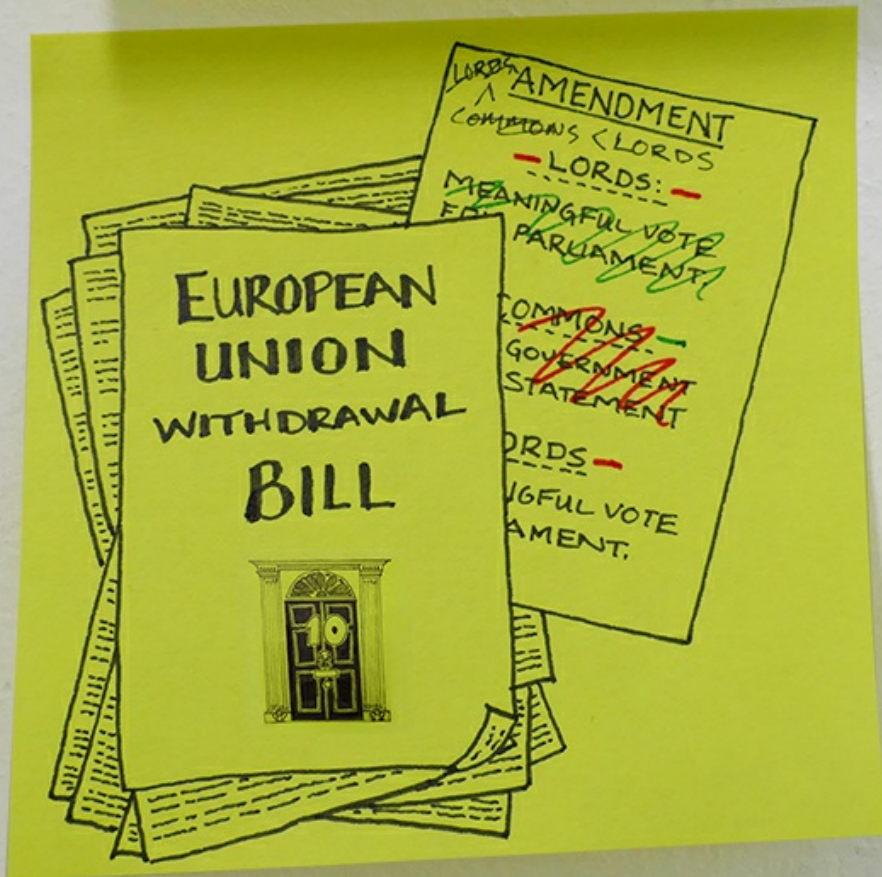 EUROPEAN
UNION
WITHDRAWAL
BILL
10
LORDS
AMENDMENT
COMMONS < LORDS
LORDS:
MEANINGFUL VOTE
PARLIAMENT.
COMMONS
GOVERNMENT
STATEMENT
ORDS
NGFUL VOTE
AMENT.